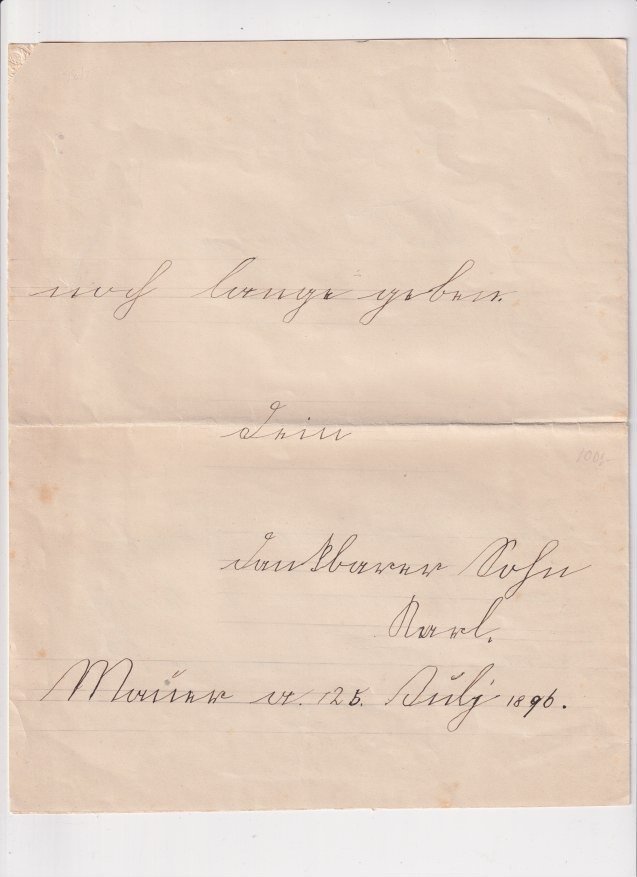 noch lange geben.
Dein
dankbarer Sohn
Karl.
Mauer a. 25. Julj 1896.